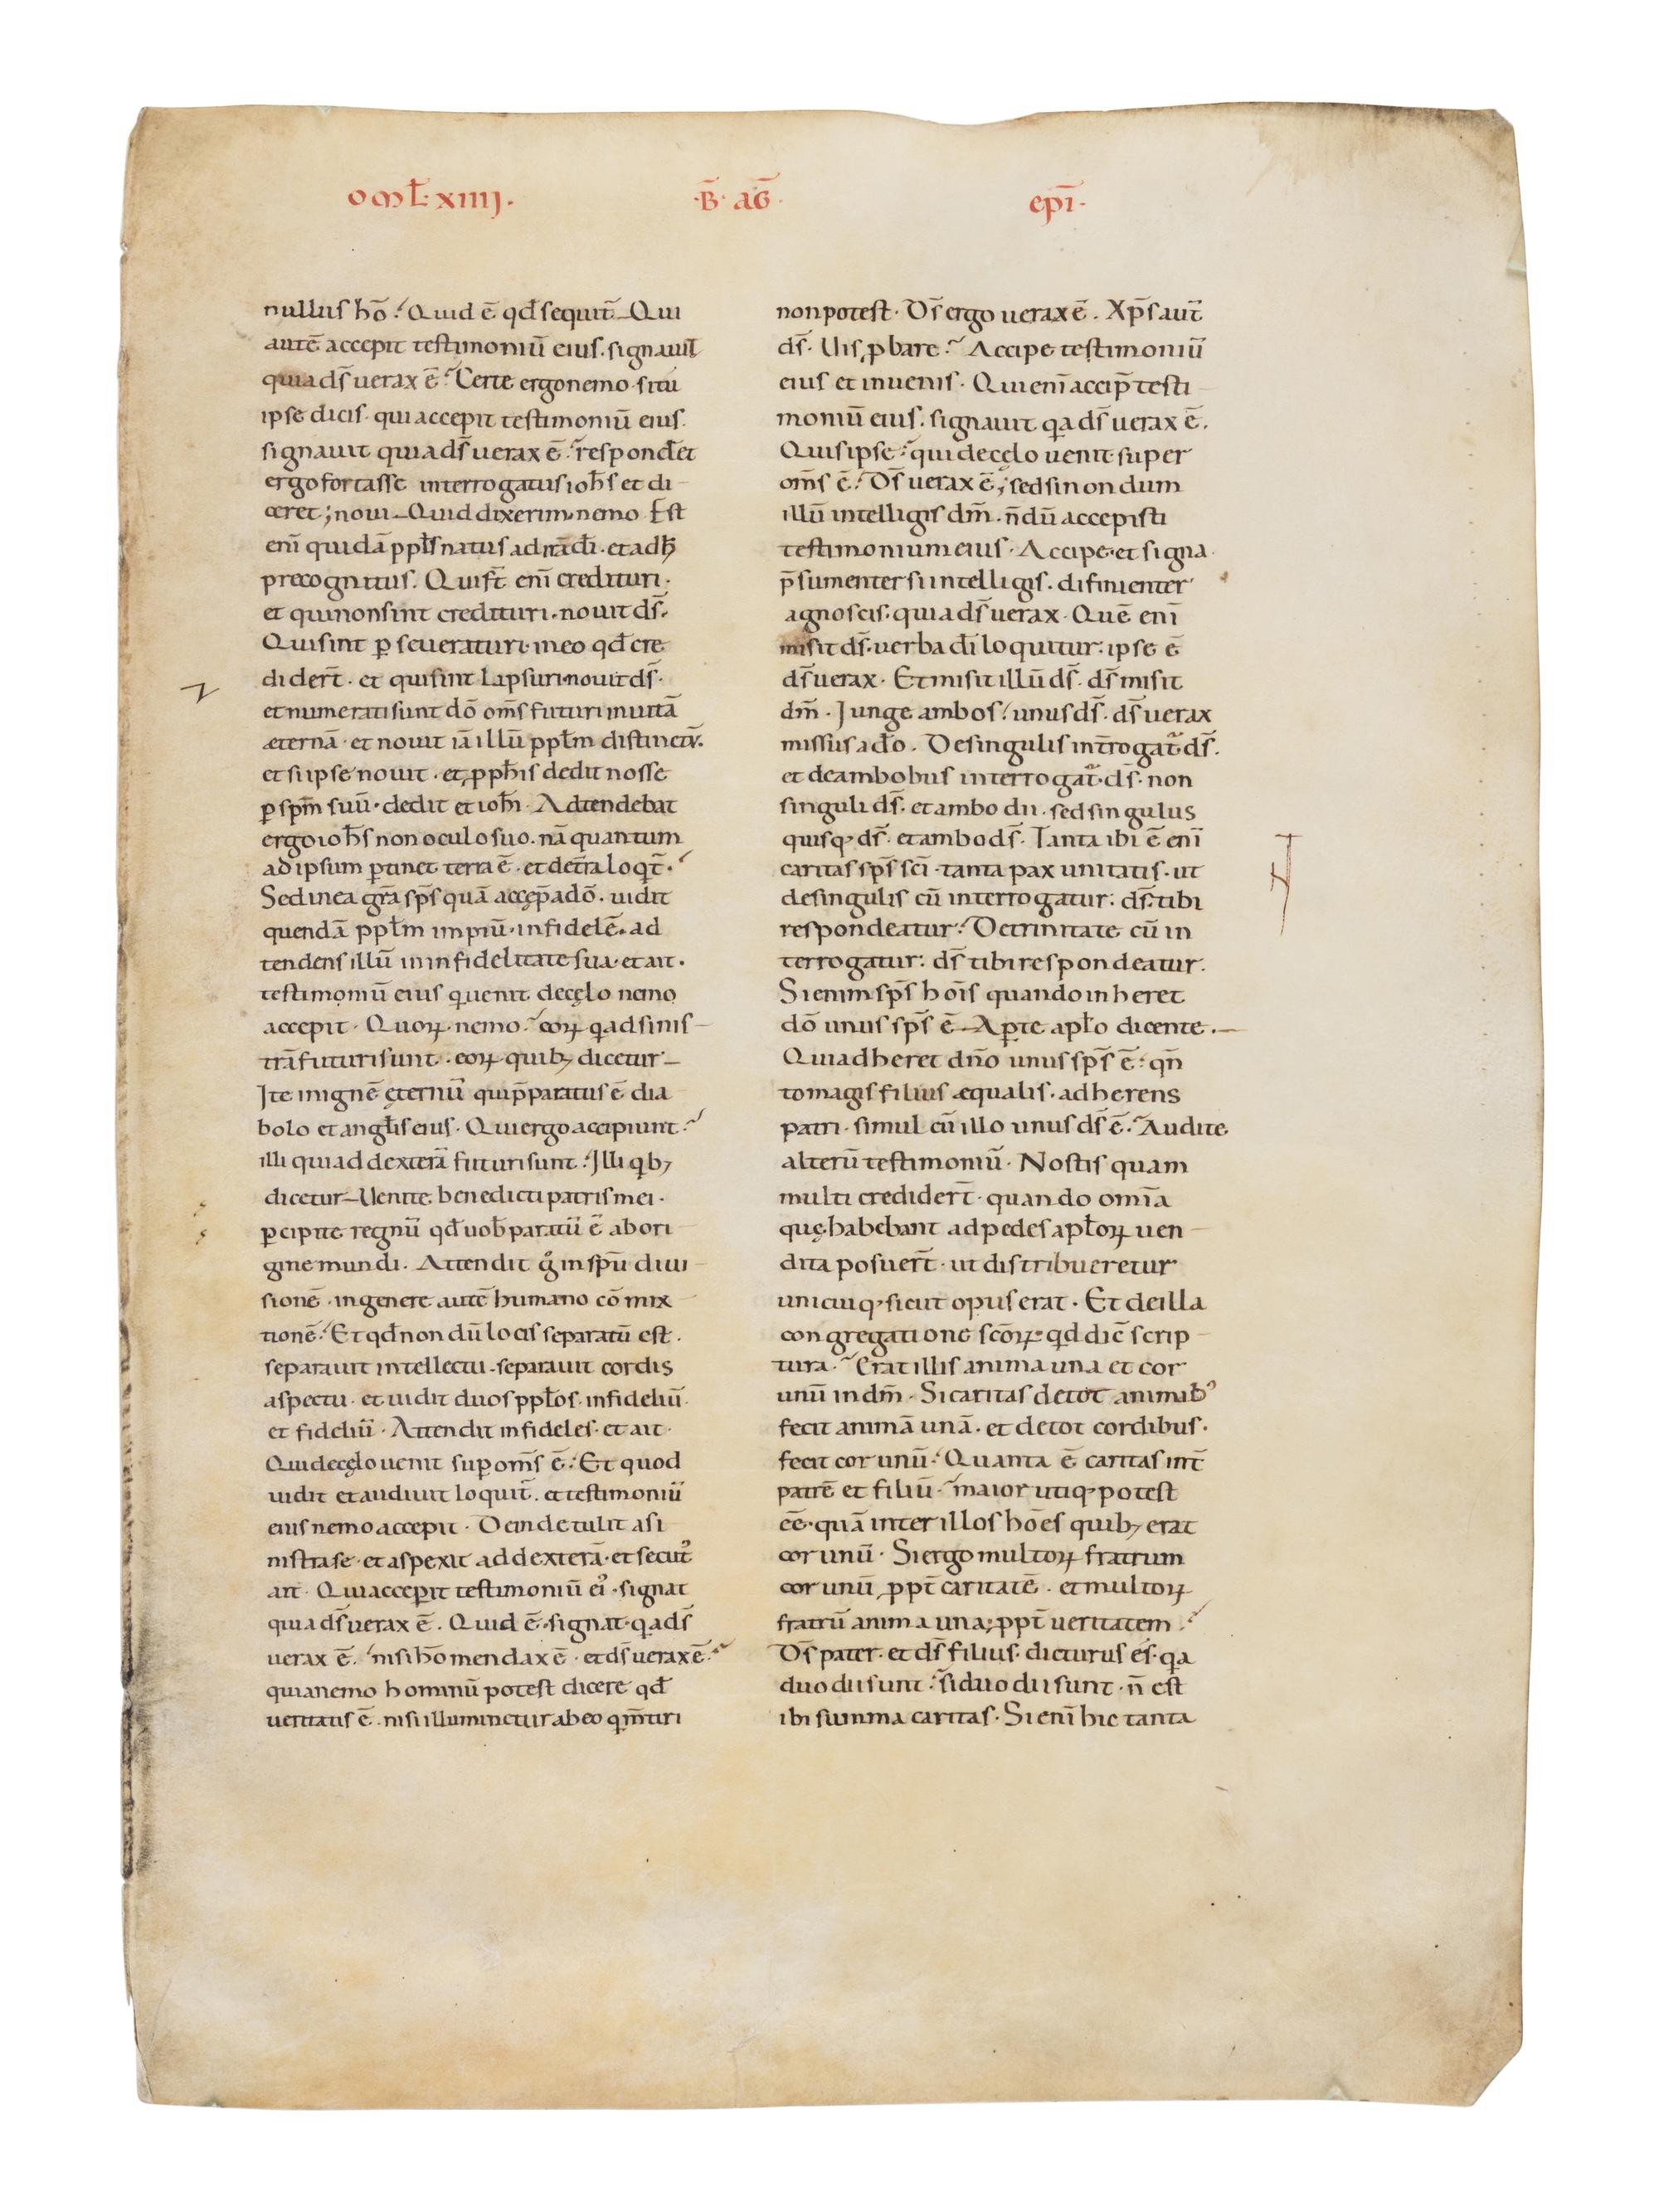 OML̄·XIIIJ·
·B̄· AḠ·
ep̄i·
nullus hō? Quid ē qđ sequit̄ Qui
autē accepit testimoniū eius. signauit
quia ds̄ uerax ē? Certe ergo nemo situ
ipse dicis· qui accepit testimoniū eius·
signauit quia ds̄ uerax ē? responđet
ergo fortasse interrogatus ioħs et di
ceret; noui Quid dixerim nemo Est
enī quidā ppl̄s natus ad irā dī· et ad ħ
precognitus. Qui st̄ enī credituri·
et qui non sint credituri· nouit ds̄·
Qui sint p seueraturi· in eo qđ cre
diderт̄· et qui sint lapsuri· nouit ds̄·
et numerati sunt dō om̄s futuri in uitā
æternā· et nouit iā illū ppl̄m distinctū.
et si ipse nouit· et ppħis dedit nosse
p spm̄ suū· dedit et ioħi· Adtendebat
ergo ioħs non oculo suo. nā quantum
ad ipsum ptinet terra ē· et de t̄ra loqt̄·
Sed in ea gr̄a sps̄ quā accep̄ a dō· uidit
quendā ppl̄m impiū· infidelē· ad
tendens illū in infidelitate sua· et ait·
testimoniū eius q uenit de cęlo nemo
accepit· Quoꝝ· nemo? eoꝝ qͣ ad sinis
trā futuri sunt· eoꝝ quibꝫ dicetur
Ite in ignē ęternū qui p̄paratus ē dia
bolo et angl̄is eius· Qui ergo accipiunt?
illi qui ad dexterā futuri sunt? Illi qͥbꝫ
dicetur Uenite benedicti patris mei·
pcipite regnū qđ uob̄ paratū ē ab ori
gine mundi· Attendit g̊ in spū diui
sionē· in genere autē humano cōmix
tionē? Et qđ non dū locis separatū est·
separauit intellectu· separauit cordis
aspectu· et uidit duos ppl̄os· infideliū
et fideliū· Attendit infideles· et ait·
Qui de cęlo uenit sup om̄s ē? Et quod
uidit et audiuit loquit̄· et testimoniū
eius nemo accepit· Deinde tulit a si
nistra se· et aspexit ad dexterā· et secut᾽
ait· Qui acceperit testimoniū ei᾽· signat
quia ds̄ uerax ē. Quid ē· signat· qͣ ds̄
uerax ē. nisi hō mendax ē· et ds̄ uerax ē?
quia nemo hominū potest dicere qđ
ueritatis ē· nisi illuminetur ab eo q m̄tiri
non potest· Ds̄ ergo uerax ē. Xp̄s aut̄
ds̄· Uis ꝓbare? Accipe testimoniū
eius et inuenis· Qui enī accip̄ testi
moniū eius· signauit qͣ ds̄ uerax ē.
Quis ipse? qui de cęlo uenit super
om̄s ē? Ds̄ uerax ē; sed si nondum
illū intelligis dm̄· n̄dū accepisti
testimonium eius· Accipe et signa
p̄sumenter si intelligis· difinienter
agnoscis· quia ds̄ uerax· Quē enī
misit ds̄· uerba dī loquitur: ipse ē
ds̄ uerax· Et misit illū ds̄· ds̄ misit
dm̄· Junge ambos? unus ds̄· ds̄ uerax
missus a dō· De singulis int̄rogat̄ ds̄·
et de ambobus interrogat̄· ds̄· non
singuli ds̄· et ambo dii· sed singulus
quisqꝫ ds̄· et ambo ds̄· Tanta ibi ē enī
caritas sps̄ scī· tanta pax unitatis· ut
de singulis cū interrogatur: ds̄· tibi
respondeatur? De trinitate cū in
terrogatur: ds̄ tibi respondeatur.
Si enim sps̄ hoīs quando inheret
dō unus sps̄ ē Apte apl̄o dicente.
Qui adheret dn̄o unus sps̄ ē? qn̄
to magis filius æqualis· adherens
patri· simul cū illo unus ds̄ ē? Audite
alterū testimoniū· Nostis quam
multi crediderт̄· quando omīa
quę habebant ad pedes apl̄oꝝ uen
dita posuerт̄· ut distribueretur
unicuiqꝫ sicut opus erat· Et de illa
congregatione scōꝝ· qd dic̄ scrip
tura? Erat illis anima una et cor
unū in dm̄· Si caritas de tot animab᾽
fecit animā unā· et de tot cordibus·
fecit cor unū? Quanta ē caritas int̄
patrē et filiū? maior utiqꝫ potest
ēē· quā inter illos hōes quibꝫ erat
cor unū· Si ergo multoꝝ fratrum
cor unū ꝓpt̄ caritatē· et multoꝝ
fratrū anima una; ꝓpt̄ ueritatem?
Ds̄ pater· et ds̄ filius· dicturus es· qͣ
duo dii sunt? si duo dii sunt· n̄ est
ibi summa caritas· Si enī hic tanta